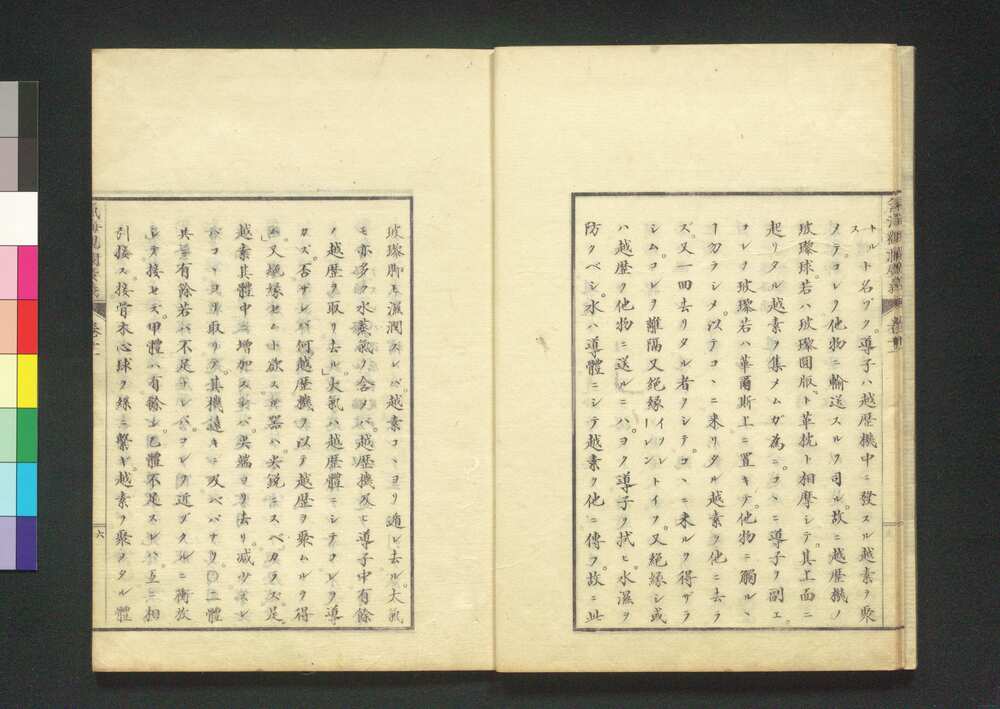 トルト名ヅク。導子ハ越歴機中ニ發スル越素ヲ聚
メテコレヲ他物ニ輸送スルヲ司ル。故ニ越歴機ノ
玻瓈球。若ハ玻瓈圓版ト革枕ト相摩シテ。其上面ニ
起リタル越素ヲ集メムガ為ニ。コヽニ導子ヲ副ヱ。
コレヲ玻瓈若ハ革爾斯上ニ置キテ。他物ニ觸ルヽ
コカラシメ。以テコヽニ来リタル越素ヲ他ニ去ラ
ズ。又一回去リタル者ヲシテ。コヽニ来ルヲ得ザラ
シム。コレヲ離隔又絶縁イソレーレントイフ。又絶縁シ或
ハ越歴ヲ他物ニ送ルニハ。ヨク導子ヲ拭ヒ水濕ヲ
防クベシ。水ハ導體ニシテ越素ヲ他ニ傳フ。故ニ此
玻瓈脚モ濕潤スレバ。越素コヽヨリ遁レ去ル。大氣
モ亦多ク水蒸氣ヲ含メバ。越歴機及ヒ導子中有餘
ノ越歴ヲ取リ去ル。大氣ハ越歴體ニシテコレヲ導
カズ。否ザレバ何越歴機ヲ以テ越歴ヲ聚ムルヲ得
ム。又絶縁セムト欲スル器ハ尖鋭ニスベカラズ。是
越素其體中ニ増加スレバ。尖端ヨリ去リ。減少スレ
バコヽヨリ取リテ。其機遠キニ及ベバナリ。○二體
其一有餘若ハ不足ナレバ。コレヲ近ヅクルニ衝放
シテ接セズ。甲體ハ有餘シ。乙體不足スレバ。互ニ相
引接ス。接骨木心球ヲ絲ニ繋ギ。越素ヲ聚メタル體
六